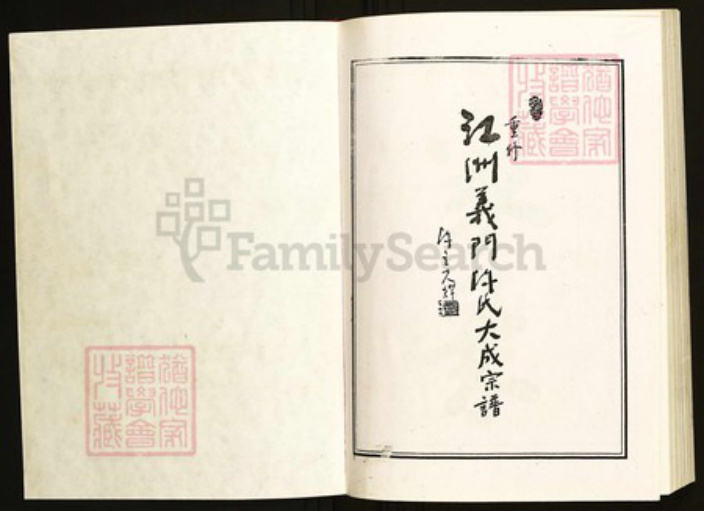 重修
江洲義門陈氏大成宗譜
FamilySearch
猶他家
譜學會
收藏
猶他家
譜學會
收藏